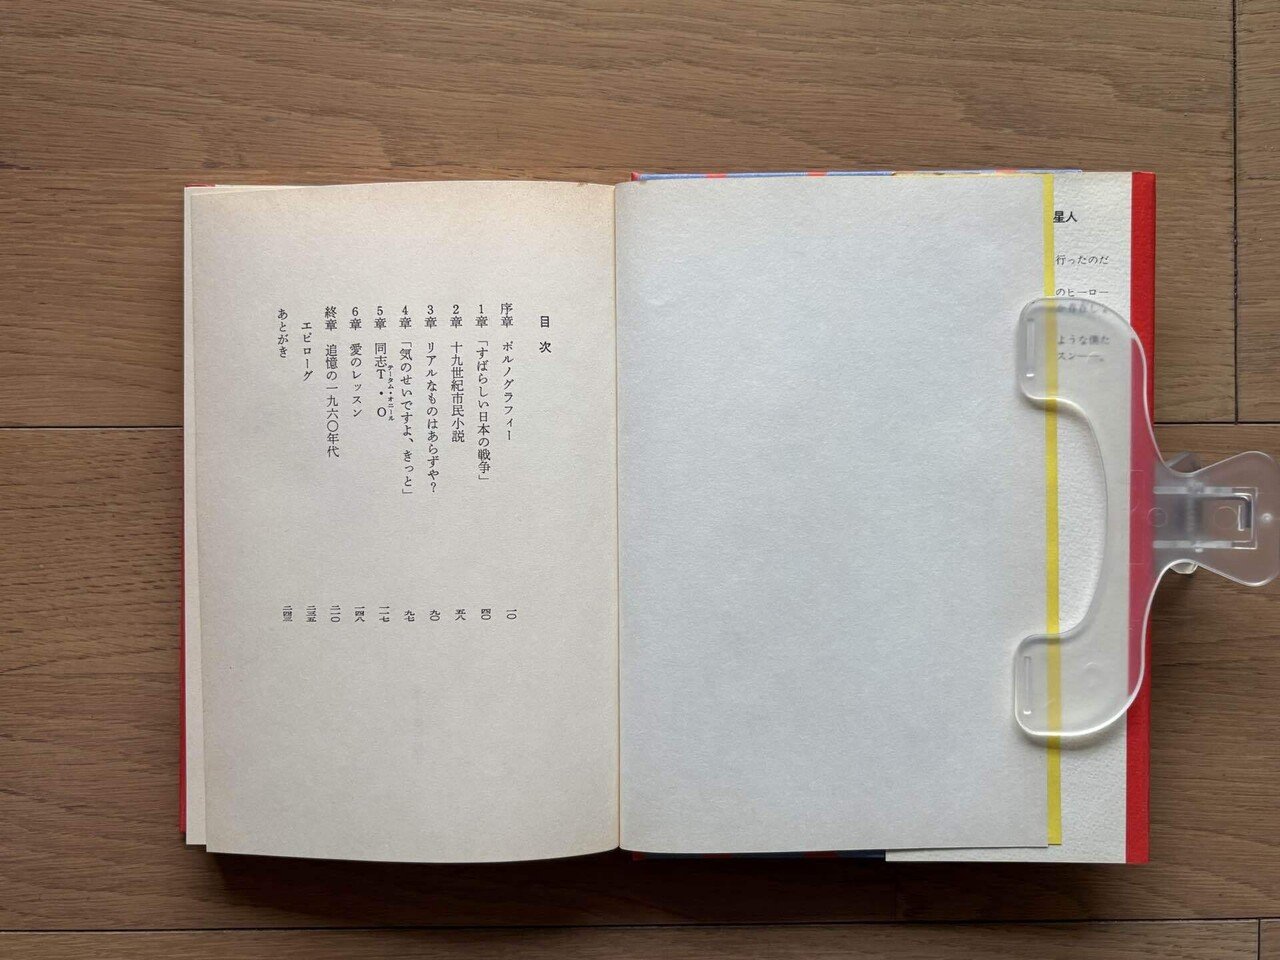 星人
行ったのだ
のヒーロー
ような傷た
スン――。
目次
序章 ポルノグラフィー 一〇
1章 「すばらしい日本の戦争」 四〇
2章 十九世紀市民小説 五八
3章 リアルなものはあらずや? 九〇
4章 「気のせいですよ、きっと」 九七
5章 同志T・O 一一七
テータム・オニール
6章 愛のレッスン 一四八
終章 追憶の一九六〇年代 二一〇
エピローグ 二三五
あとがき 二四三